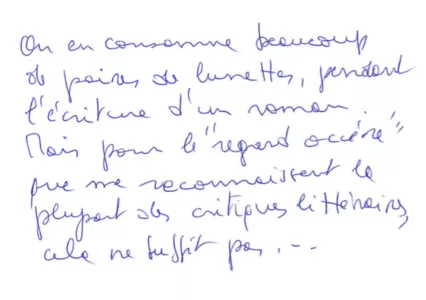 On en consomme beaucoup
de paires de lunettes, pendant
l'écriture d'un roman.
Mais pour le "regard acéré"
que me reconnaissent la
plupart des critiques littéraires,
cela ne suffit pas...